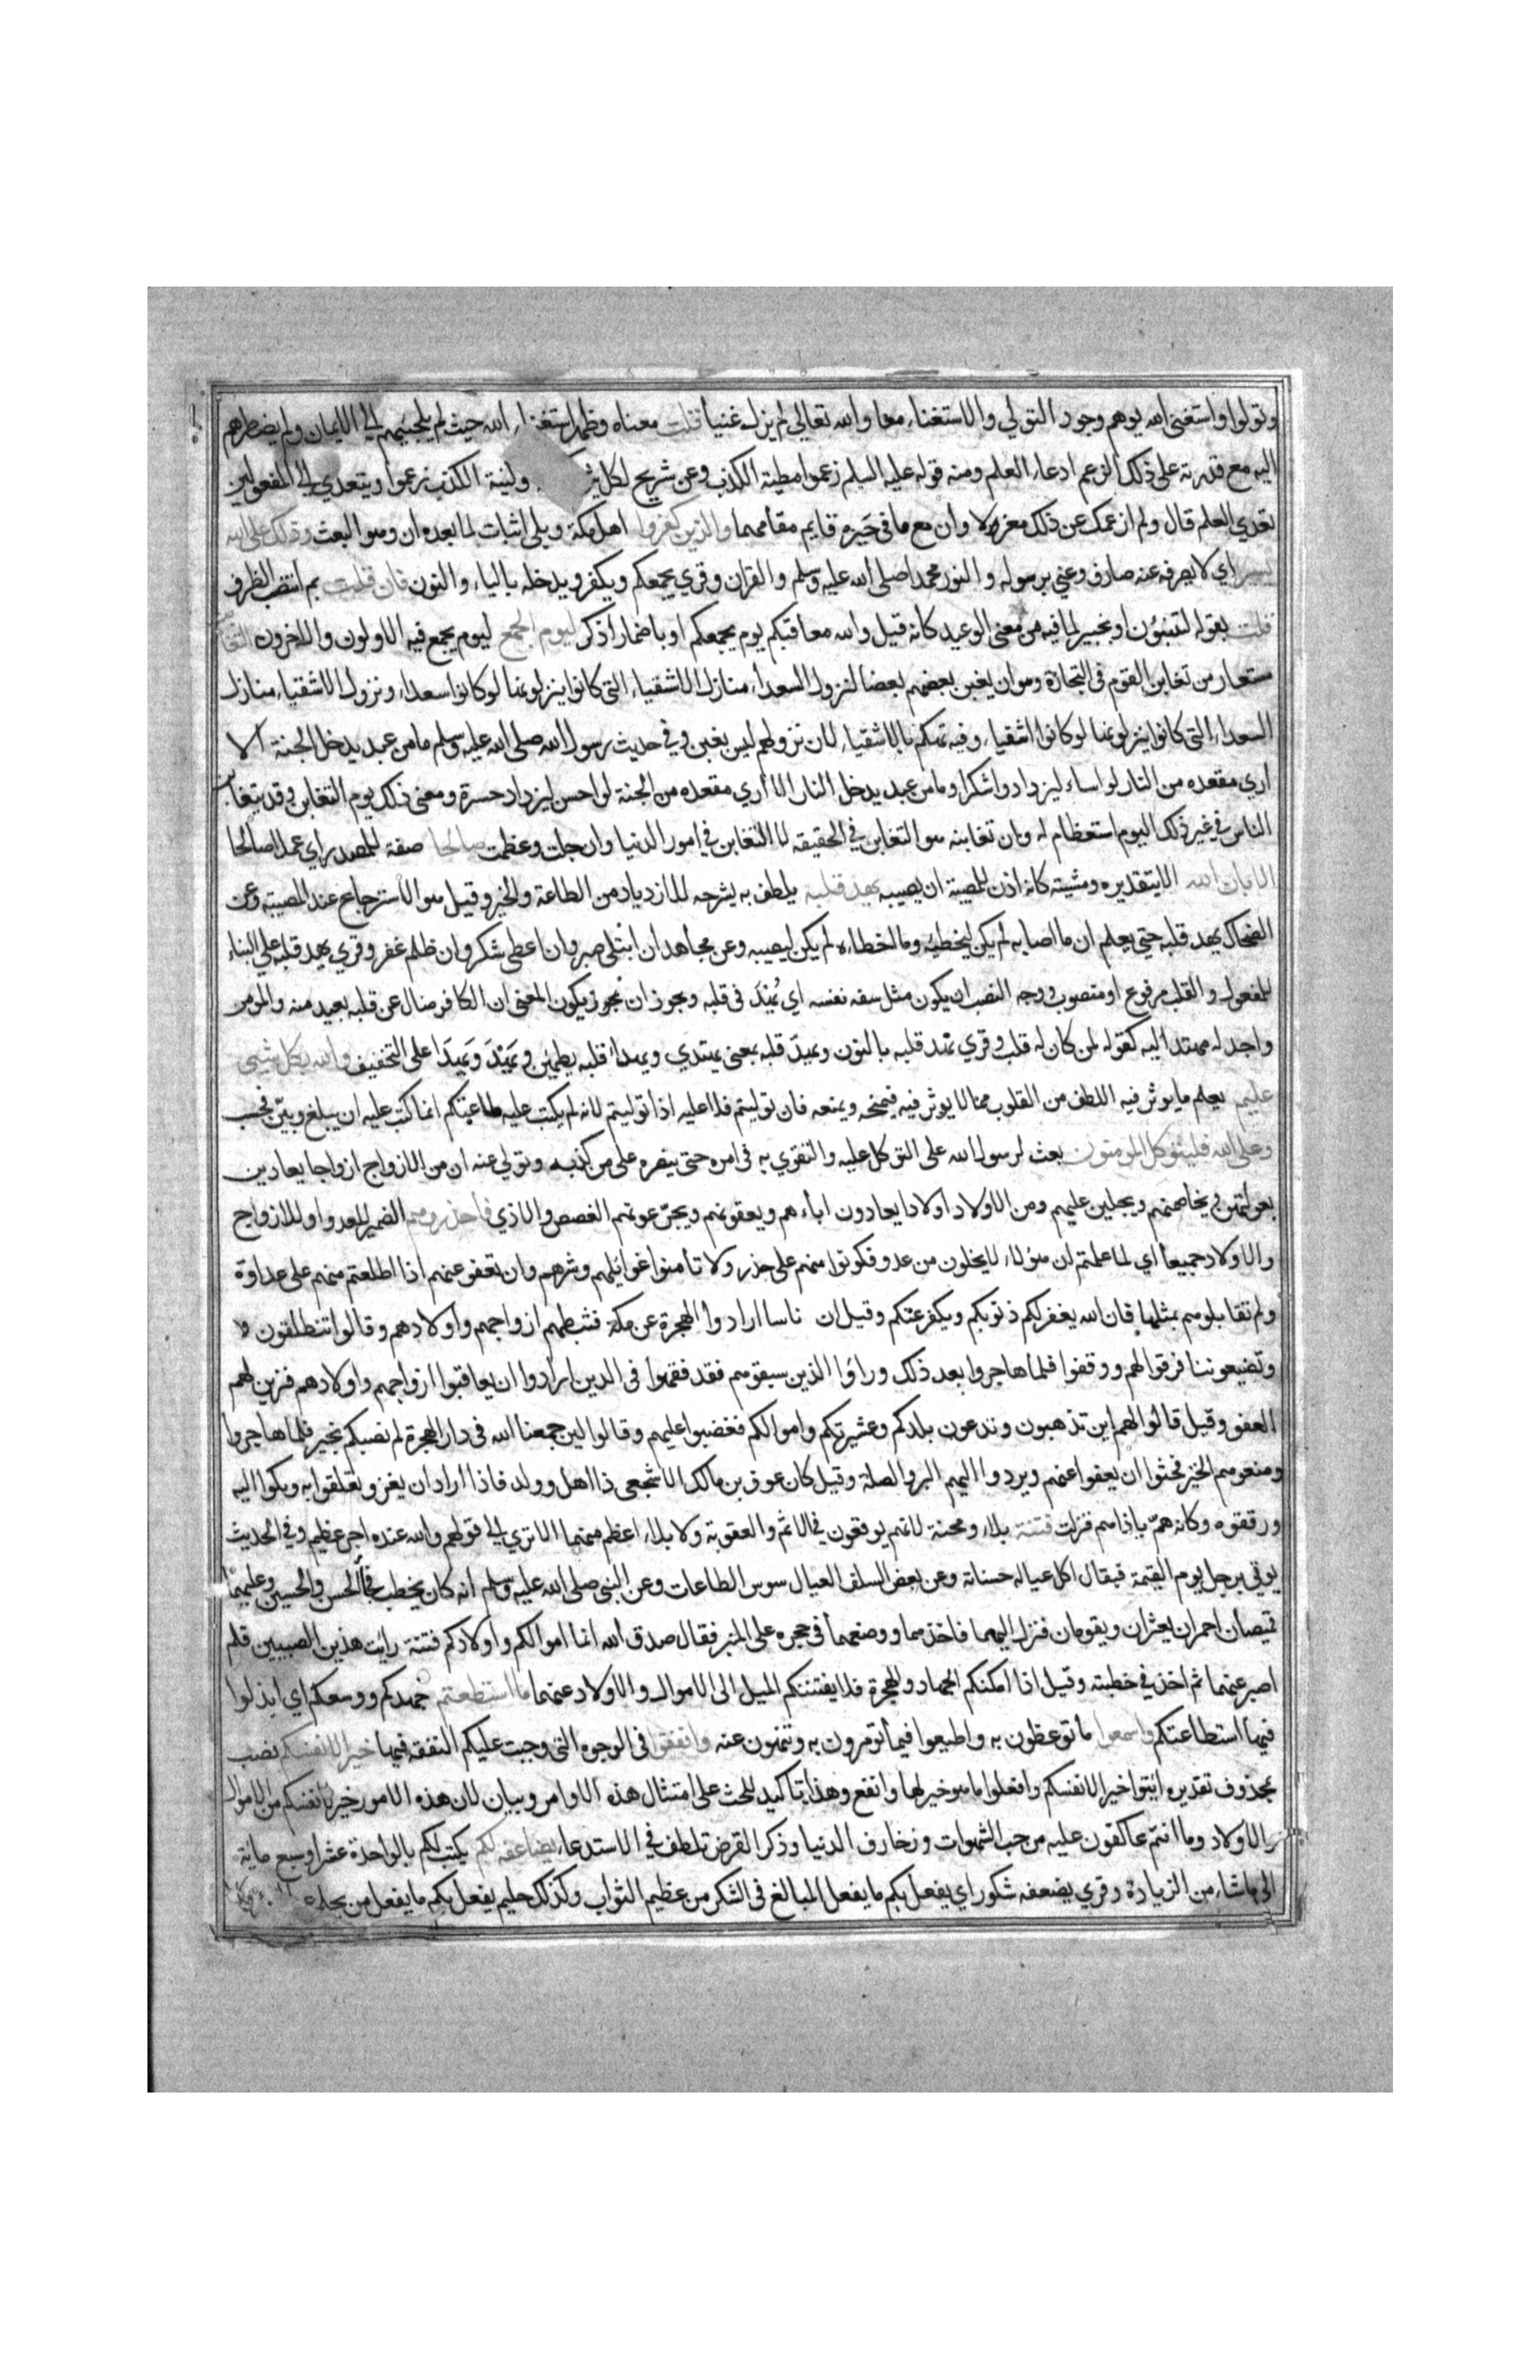 وتولوا واستغنى الله يوهم وجود التولي والاستغناء معا والله تعالى لم يزل غنيا قلت معناه وظهر استغناء الله حيث لم يلجئهم الى الايمان ولم يضطرهم
اليه مع قدرته على ذلك الزعم ادعاء العلم ومنه قوله عليه السلم زعموا مطية الكذب وعن شريح لكل وكنية الكذب زعموا ويتعدي الى المفعولين
تعدي العلم قال ولم ازعمك عن ذلك معزولا وان مع ما في حيزه قايم مقامهما والذين كفروا اهل مكة وبلى اثبات لما بعده ان وهو البعث وذلك على الله
يسير اي لا يصرفه عنه صارف وعني برسوله والنور محمدا صلى الله عليه وسلم والقران وقري يجمعكم ويكفر ويدخله بالياء والنون فان قلت بم انتصب الظرف
قلت بقوله لتنبؤن او بخبير لما فيه من معنى الوعيد كانه قيل والله معاقبكم يوم يجمعكم او باضمار اذكر ليوم الجمع ليوم يجمع فيه الاولون والاخرون التغابن
مستعار من تغابن القوم في التجارة وهو ان يغبن بعضهم بعضا لنزول السعداء منازل الاشقياء التي كانوا ينزلونها لو كانوا سعداء ونزول الاشقياء منازل
السعداء التي كانوا ينزلونها لو كانوا اشقياء وفيه تهكم بالاشقياء لان نزولهم ليس بغبن وفي حديث رسول الله صلى الله عليه وسلم ما من عبد يدخل الجنة الا
اري مقعده من النار لو اساء ليزداد شكرا وما من عبد يدخل النار الا اري مقعده من الجنة لو احسن ليزداد حسرة ومعنى ذلك يوم التغابن وقد يتغابن
الناس في غير ذلك اليوم استعظام له وان تغابنه هو التغابن في الحقيقه لا التغابن في امور الدنيا وان جلت وعظمت صالحا صفة للمصدر اي عملا صالحا
الا باذن الله الا بتقديره ومشيته كانه اذن للمصيبة ان يصيبه يهد قلبه يلطف به يشرحه للازدياد من الطاعة والخير وقيل هو الاسترجاع عند المصيبة وعن
الضحاك يهد قلبه حتى يعلم ان ما اصابه لم يكن ليخطيه وما اخطاءه لم يكن ليصيبه وعن مجاهد ان ابتلى صبر وان اعطى شكر وان ظلم غفر وقري يهد قلبه على البناء
للمفعول والقلب مرفوع او منصوب ووجه النصب ان يكون مثل سفه نفسه اي يُهدَ في قلبه ويجوز ان يجوز يكون المعنى ان الكافر ضال عن قلبه بعيد منه والمومن
واجد له مهتد اليه كقوله لمن كان له قلب وقري نهد قلبه بالنون ويهدّ قلبه بمعنى يهتدي ويهدأ قلبه يطمئن ويَهْدَ ويَهْدَا على التخفيف والله بكل شيى
عليم يعلم ما يوثر فيه اللطف من القلوب مما لا يوثر فيه فيمنحه ويمنعه فان توليتم فلا عليه اذا توليتم لانه لم يكتب عليه طاعتكم انما كتب عليه ان يبلغ ويبين فحسب
وعلى الله فليتوكل المومنون بعث لرسول الله على التوكل عليه والتقوي به في امره حتى ينصره على من كذبه وتولي عنه ان من الازواج ازواجا يعادين
بعولتهن ويخاصمنهم ويجلبن عليهم ومن الاولاد اولادا يعادون اباءهم ويعقونهم ويجرّعونهم الغصص والاذي فاحذروهم الضمير للعدو او للازواج
والاولاد جميعا اي لما علمتم ان هؤلاء لا يخلون من عدو فكونوا منهم على حذر ولا تأمنوا غوائلهم وشرهم وان تعفو عنهم اذا اطلعتم منهم على عداوة
ولم تقابلوهم بمثلها فان الله يغفر لكم ذنوبكم ويكفر عنكم وقيل ان ناسا ارادوا الهجرة عن مكة فثبطهم ازواجهم واولادهم وقالوا تنطلقون
وتضيعوننا فرقوا لهم ووقفوا فلما هاجروا بعد ذلك وراؤا الذين سبقوهم فقد فقهوا في الدين ارادوا ان يعاقبوا ازواجهم واولادهم فزين لهم
العفو وقيل قالوا لهم اين تذهبون وتدعون بلدكم وعشيرتكم واموالكم فغضبوا عليهم وقالوا لين جمعنا الله في دار الهجرة لم نصبكم بخير فلما هاجروا
ومنعوهم الخير فحثوا ان يعفوا عنهم ويردوا اليهم البر والصلة وقيل كان عوف بن مالك الاشجعي ذا اهل وولد فاذا اراد ان يغزو تعلقوا به وبكوا اليه
ورققوه وكانه همّ باذاهم فنزلت فتنة بلاء ومحنة لانهم يوقعون في الاثم والعقوبة ولا بلاء اعظم منهما الا تري الى قولهم والله عنده اجر عظيم وفي الحديث
يوتي برجل يوم القيمة فيقال اكل عياله حسناته وعن بعض السلف العيال سوس الطاعات وعن النبي صلى الله عليه وسلم انه كان يخطب فجأ الحسن والحسين وعليهما
قميصان احمران يعثران ويقومان فنزل اليهما فاخذهما ووضعهما في حجره على المنبر فقال صدق الله انما اموالكم واولادكم فتنة رايت هذين الصبيين فلم
اصبر عنهما ثم اخذ في خطبته وقيل اذا امكنكم الجهاد والهجرة فلا يفتننكم الميل الى الاموال والاولاد عنهما ما استطعتم جهدكم ووسعكم اي ابذلوا
فيها استطاعتكم واسمعوا ما توعظون به واطيعوا فيما تومرون به وتنهون عنه وانفقوا في الوجوه التي وجبت عليكم النفقه فيها خيرا لانفسكم نصب
بمحذوف تقديره ايتوا خيرا لانفسكم وافعلوا ما هو خير لها وانفع وهذا تاكيد للحث على امتثال هذه الاوامر وبيان لان هذه الامور خير لانفسكم من الاموال
والاولاد وما انتم عاكفون عليه من حب الشهوات وزخارف الدنيا وذكر القرض تلطف في الاستدعاء يضاعفه لكم يكتب لكم بالواحدة عشرا وسبع ماية
الى ما شاء من الزيادة وقري يضعفه شكور اي يفعل بكم ما يفعل المبالغ في الشكر من عظيم الثواب وكذلك حليم يفعل بكم ما يفعل من